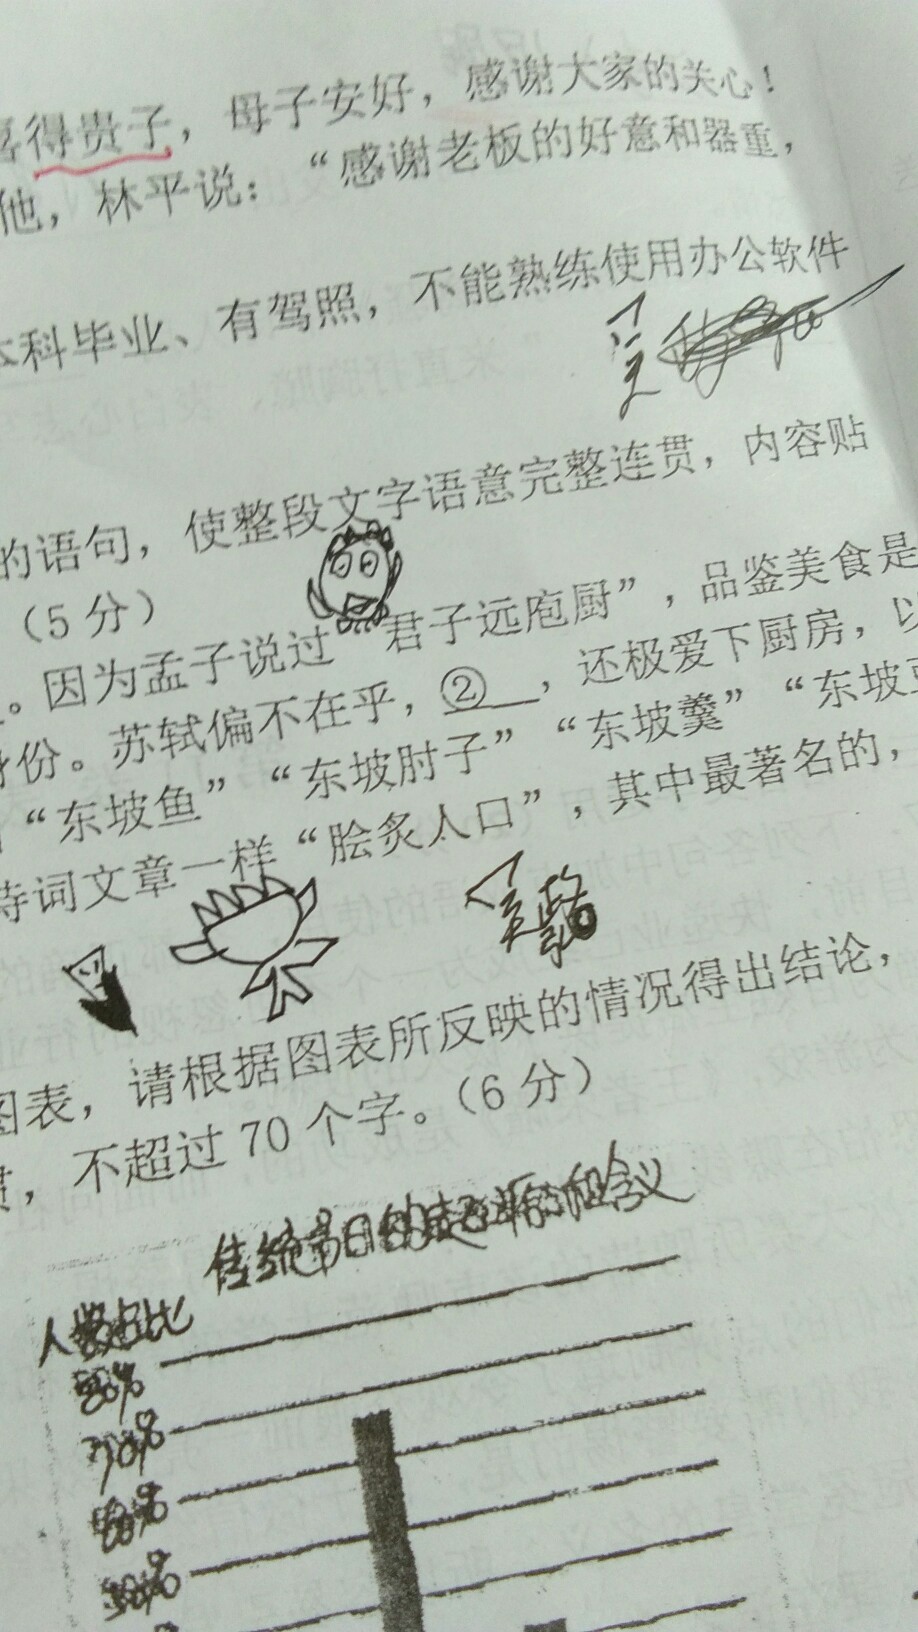 得贵子，母子安好，感谢大家的关心！
他，林平说：“感谢老板的好意和器重，
本科毕业、有驾照，不能熟练使用办公软件
的语句，使整段文字语意完整连贯，内容贴
（5分）
。因为孟子说过“君子远庖厨”，品鉴美食是
身份。苏轼偏不在乎，②，还极爱下厨房，以
“东坡鱼”“东坡肘子”“东坡羹”“东坡豆
诗词文章一样“脍炙人口”，其中最著名的，
图表，请根据图表所反映的情况得出结论，
贯，不超过70个字。（6分）
传统节日的起源和含义
人数占比
70%